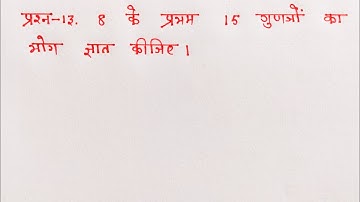 प्रश्न-13. 8 के प्रथम 15 गुणजों का
योग ज्ञात कीजिए।